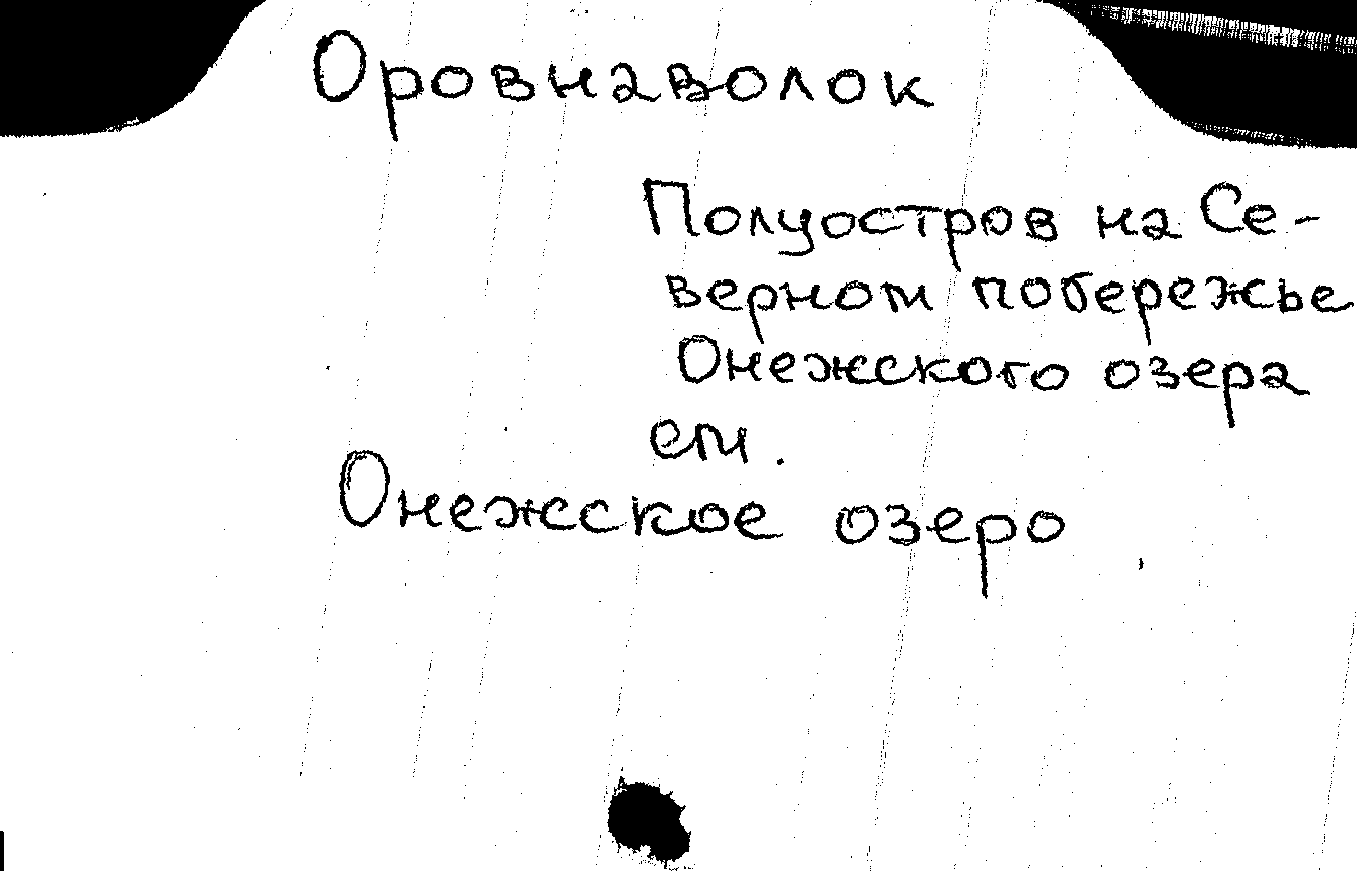 Оровнаволок
Полуостров на Се-
верном побережье
Онежского озера
см.
Онежское озеро